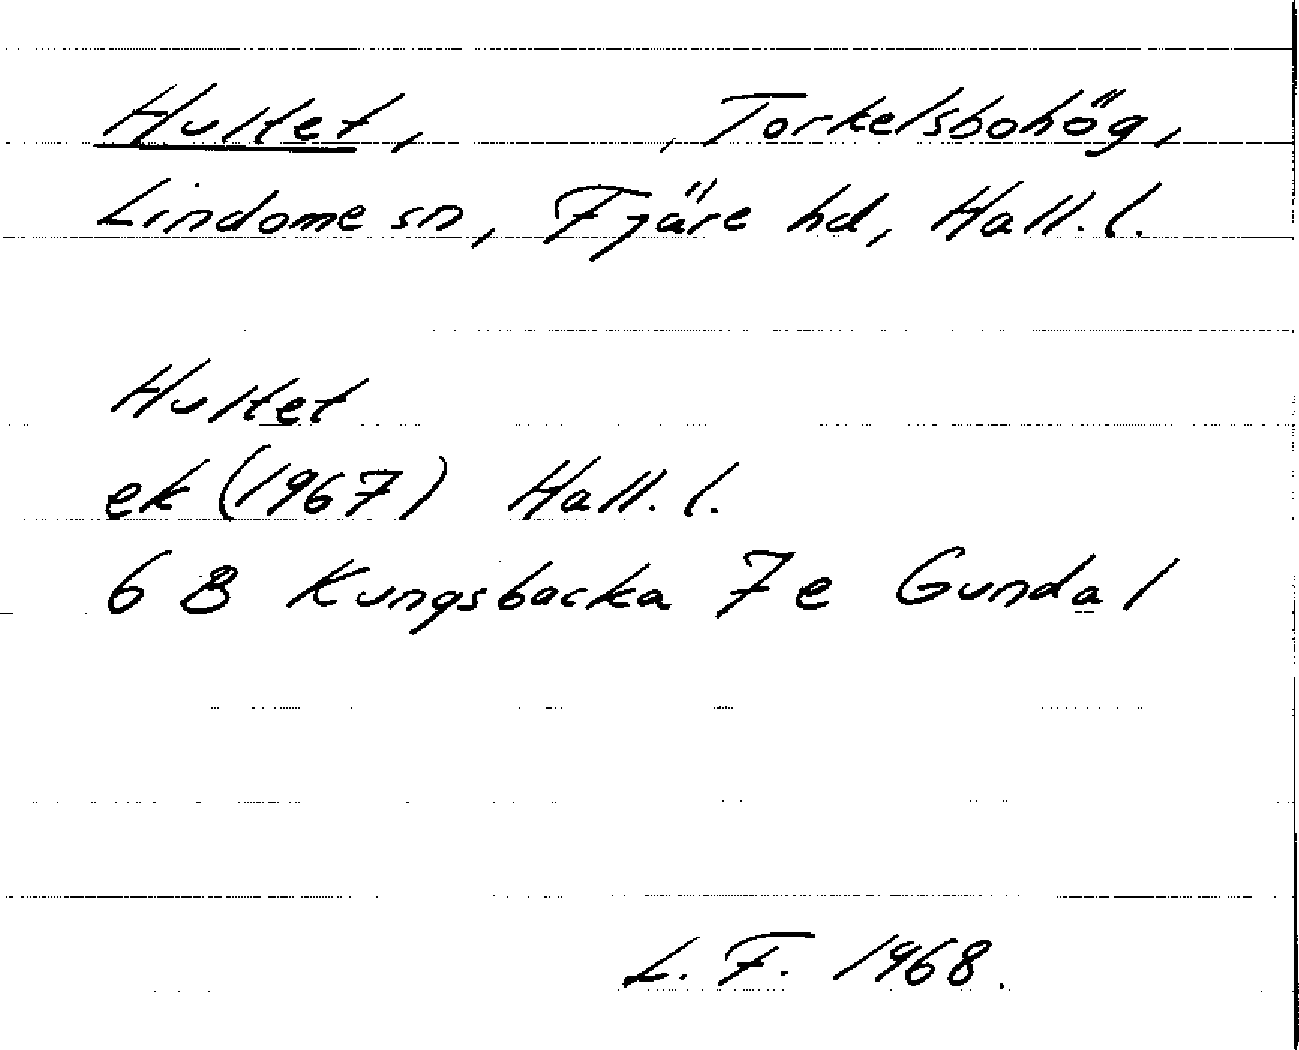 Hultet, , Torkelsbohög,
Lindome sn, Fjäre hd, Hall. l.
Hultet
ek (1967) Hall. l.
6 B Kungsbacka 7e Gundal
L. F. 1968.